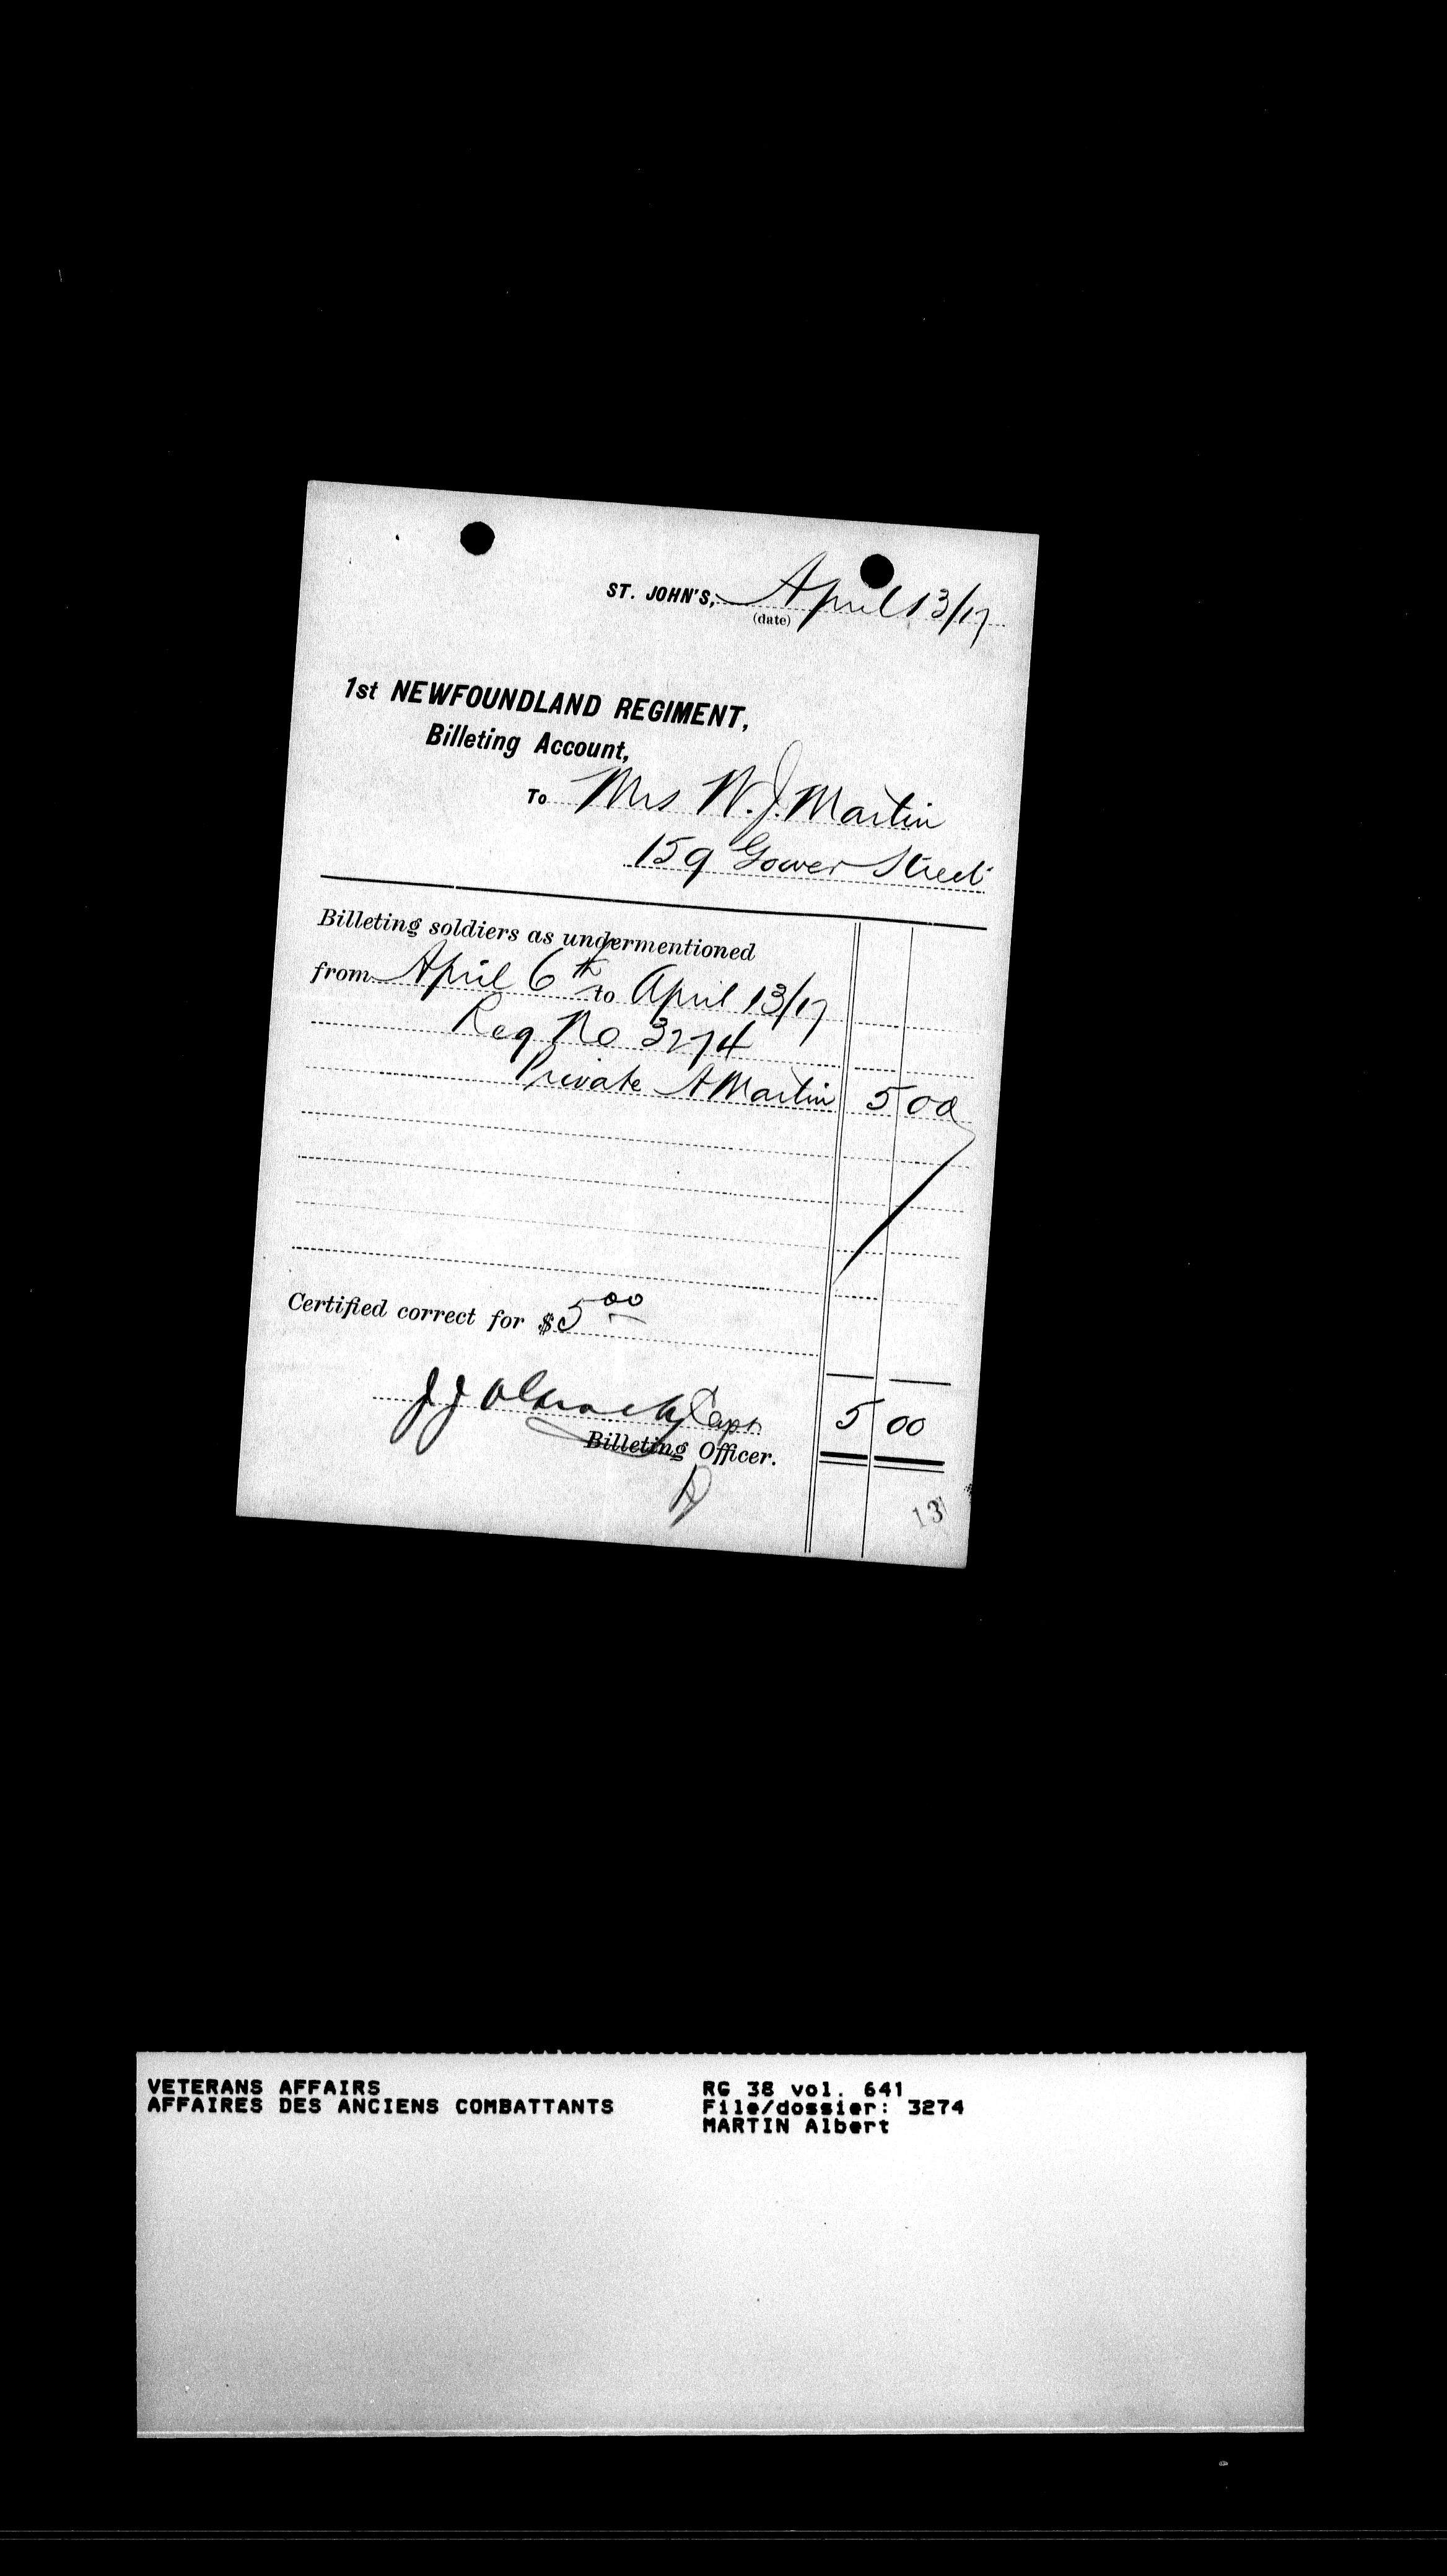 ST. JOHN'S, April 13/17
(date)
1st NEWFOUNDLAND REGIMENT,
Billeting Account,
To Mrs W. J. Martin
159 Gower Street
Billeting soldiers as undermentioned
from April 6th to April 13/17
Reg No 3274
Private A Martin 5 00
Certified correct for $5 00
J J Capt 5 00
Billeting Officer.
13
VETERANS AFFAIRS
AFFAIRES DES ANCIENS COMBATTANTS
RG 38 vol. 641
File/dossier: 3274
MARTIN Albert